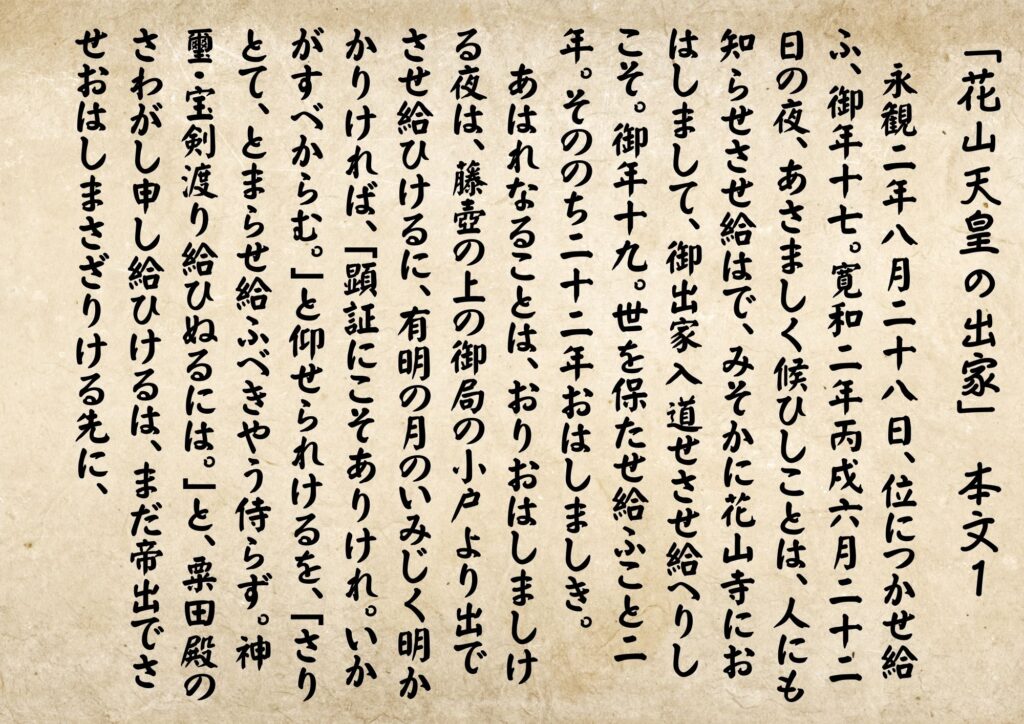 「花山天皇の出家」　本文1
永観二年八月二十八日、位につかせ給
ふ、御年十七。寛和二年丙戌六月二十二
日の夜、あさましく候ひしことは、人にも
知らせさせ給はで、みそかに花山寺にお
はしまして、御出家入道せさせ給へりし
こそ。御年十九。世を保たせ給ふこと二
年。そののち二十二年おはしましき。
あはれなることは、おりおはしましけ
る夜は、藤壺の上の御局の小戸より出で
させ給ひけるに、有明の月のいみじく明か
かりければ、「顕証にこそありけれ。いか
がすべからむ。」と仰せられけるを、「さり
とて、とまらせ給ふべきやう侍らず。神
璽・宝剣渡り給ひぬるには。」と、粟田殿の
さわがし申し給ひけるは、まだ帝出でさ
せおはしまさざりける先に、